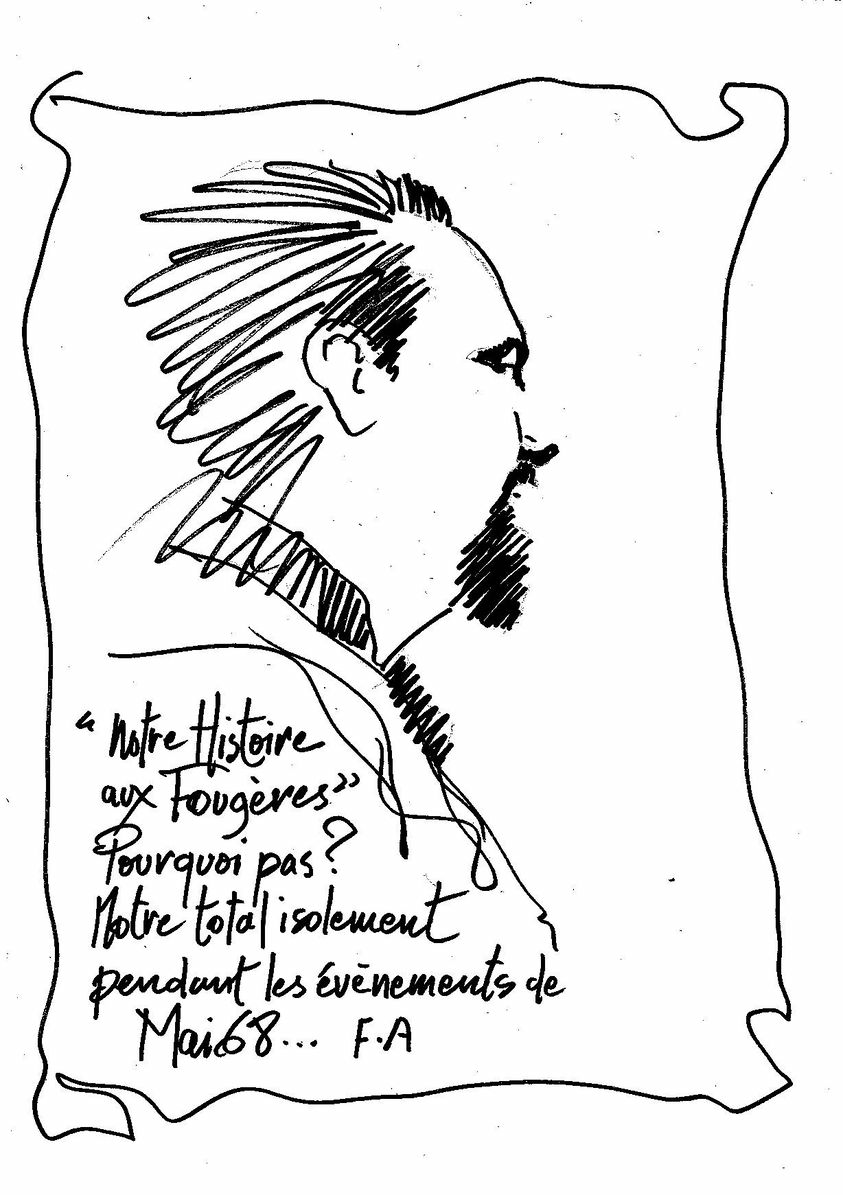 “Notre Histoire
aux Fougères”
Pourquoi pas?
Notre total isolement
pendant les évènements de
Mai 68... F.A